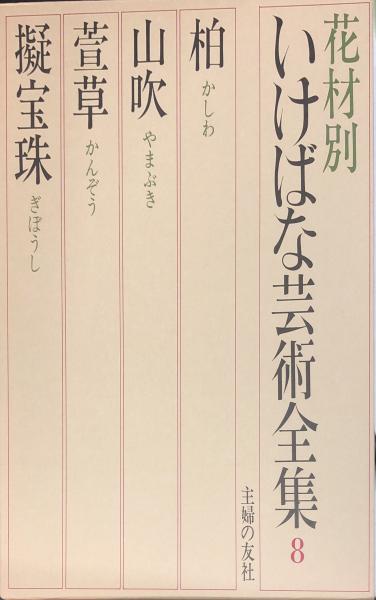 花材別
いけばな芸術全集8
主婦の友社
柏 かしわ
山吹 やまぶき
萱草 かんぞう
擬宝珠 ぎぼうし